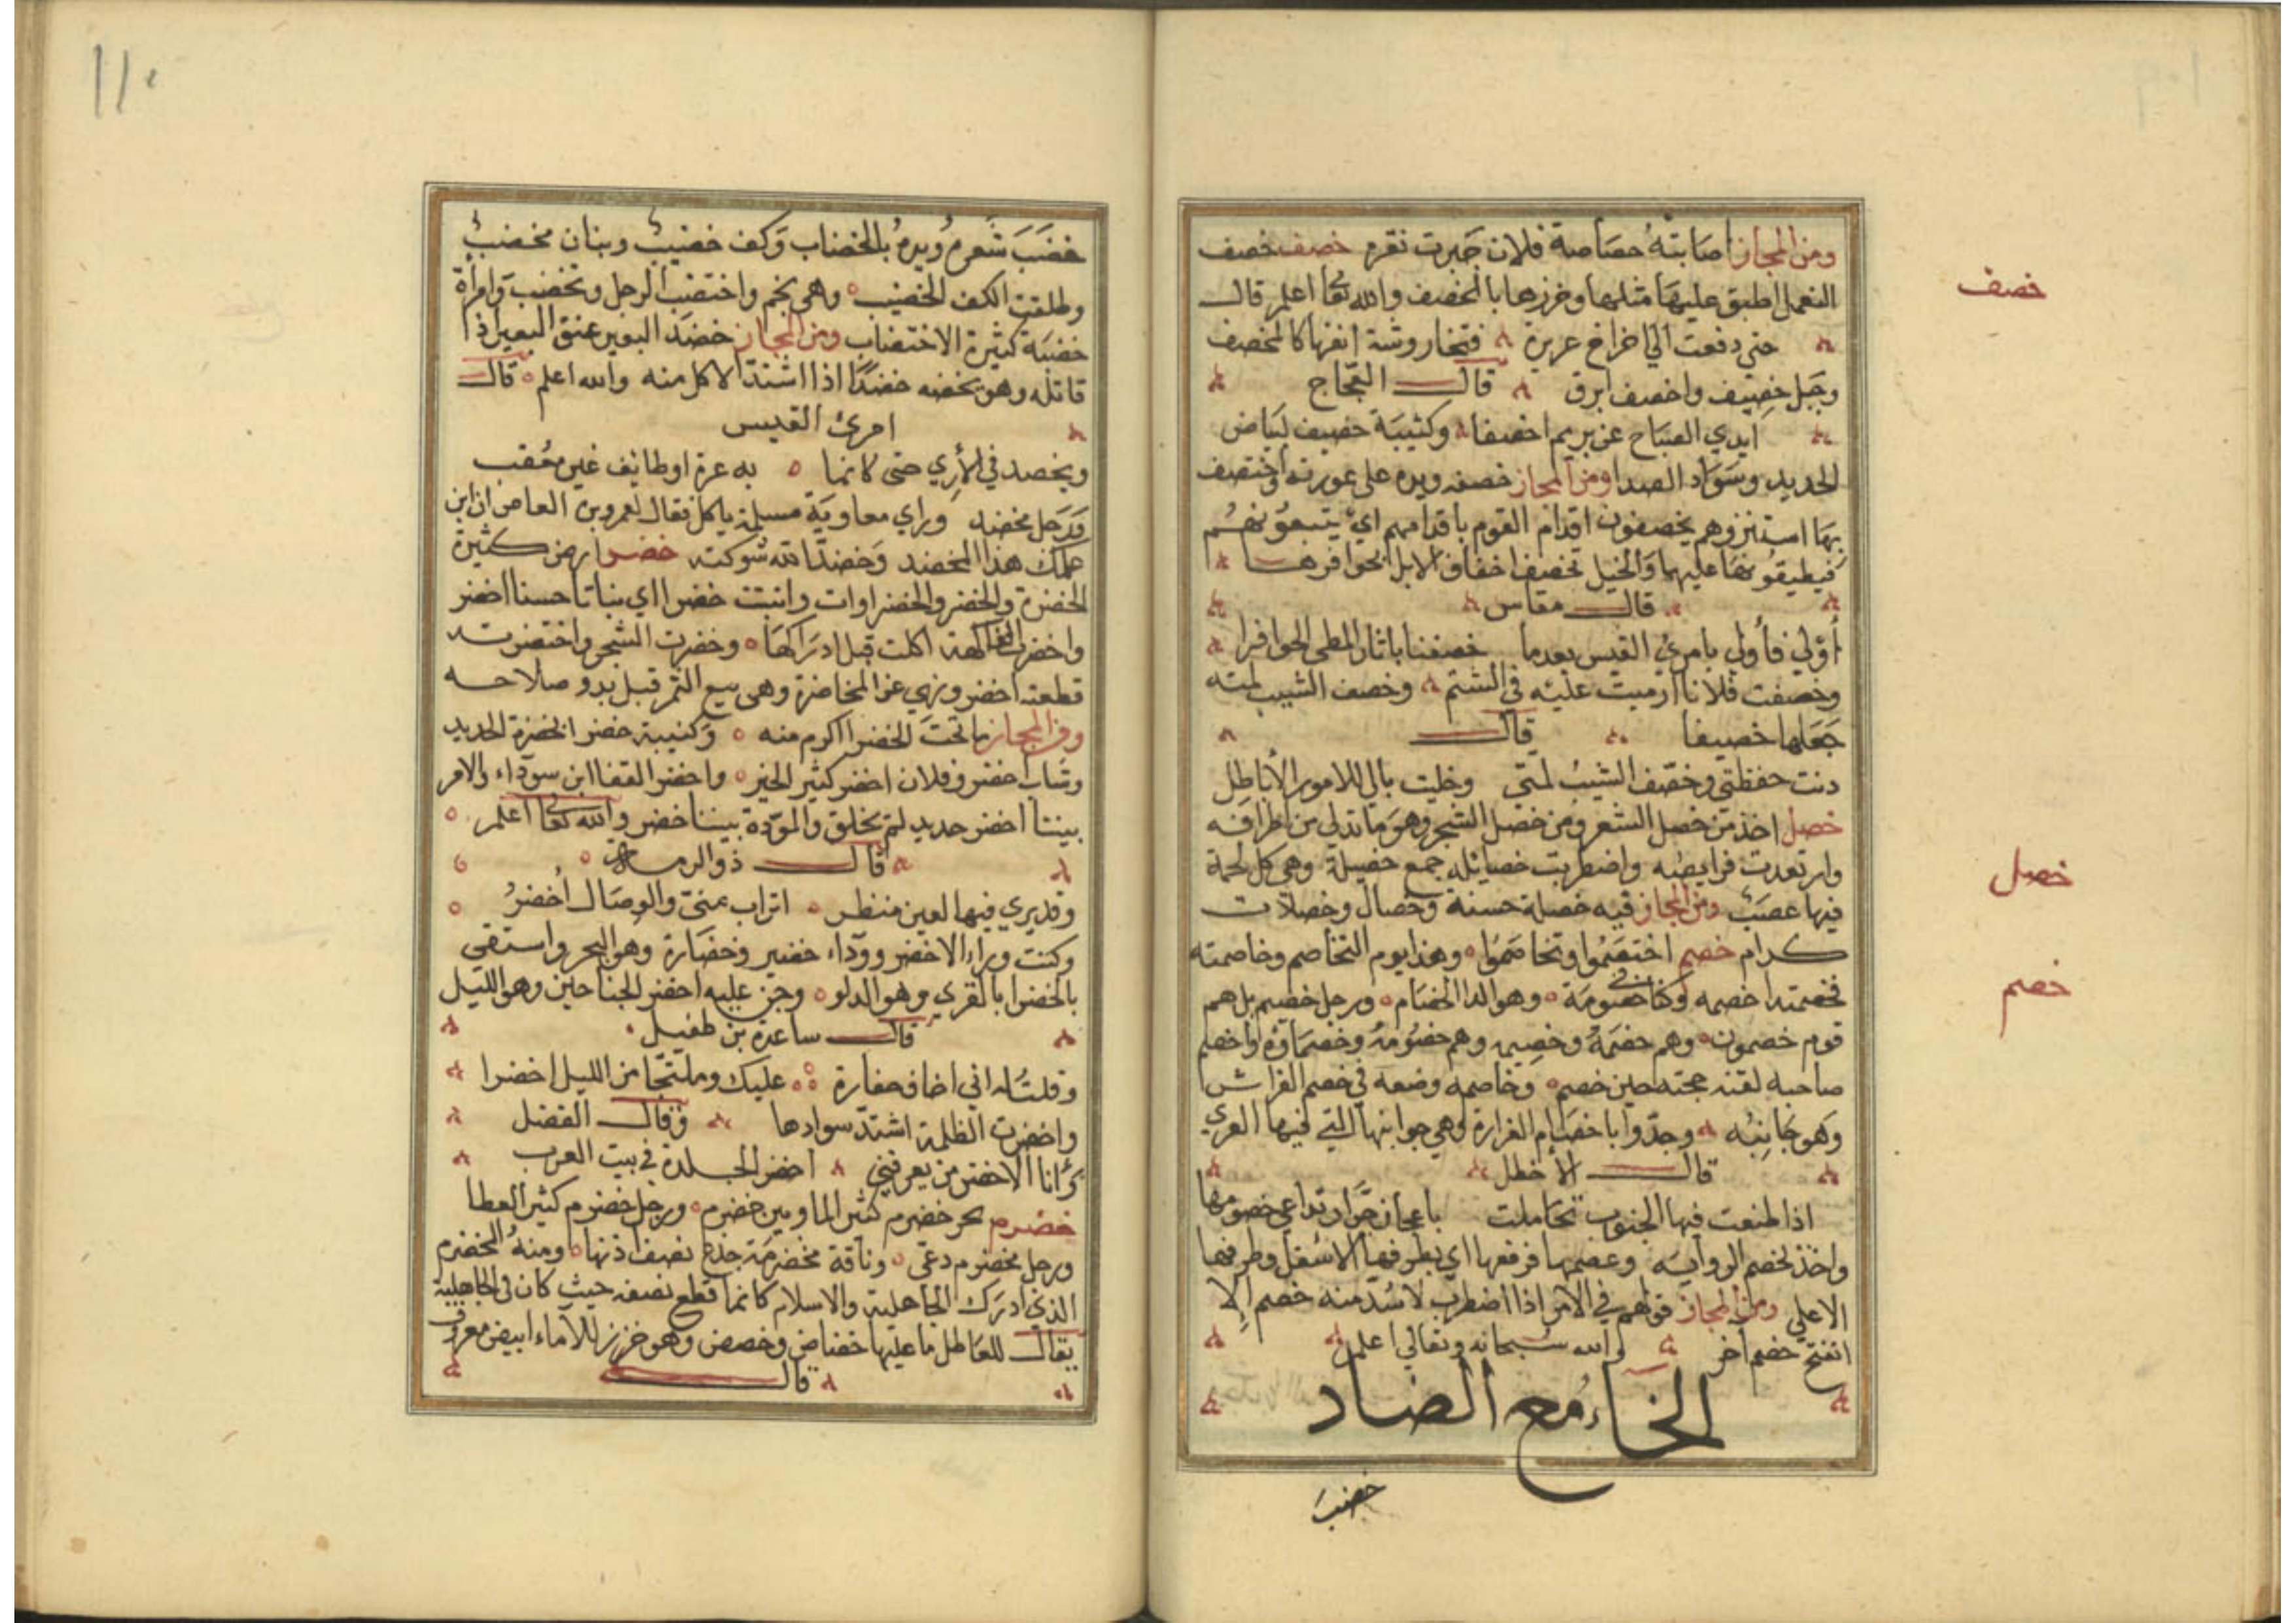 ومن المجاز اصابته خصاصة فلان جبرت نقره خصف خصف
خصف
النعل اطبق عليها مثلها وخرزها بالمخصف والله تعا اعلم قال
حتي دفعت الي فراخ عزيزة فتخار وشة انفها كالمخصف
وجبل خصيف واخصف ابرق قال العجاج
ابدي الصباح عن بريم اخصفا وكتيبة خصيف لبياض
الحديد وسواد الصدا ومن المجاز خصف ويده علي عورته واختصف
بها استتر وهم يخصفون اقدام القوم باقدامهم اي يتبعونهم
فيطبقونها عليها والخيل تخصف اخفاف الابل بحوافرها
قال مقاس
أولي فأولي يا مرئ القيس بعدما خصفنا باثار المطي الحوافرا
وخصفت فلانا ارميت عليه في الشتم وخصف الشيب لمته
جعلها خصيفا قال
دنت حفظتي وخصف الشيب لمتي وخليت بالي للامور الأباطل
خصل اخذ من خصل الشعر ومن خصل الشجر وهو ما تدلي من اطرافه
خصل
وارتعدت فرايصه واضطربت خصايله جمع خصيلة وهي كل لحمة
فيها عصب ومن المجاز فيه خصلة حسنة وخصال وخصلات
كرام خصم اختصموا وتخاصموا وهذا يوم التخاصم وخاصمته
خصم
فخصمته اخصمه وكانت خصومة وهو الدا الخصام ورجل خصيم بل هم
قوم خصمون وهم خصمه وخصيمه وهم خصومه وخصماؤه واخصم
صاحبه لقنه حجته حين خصم وخاصمه وضعه في خصم الفراش
وهو جانبه وجدوا باخصام الغرارة وهي جوانبها التي فيها العري
قال الاخطل
اذا طعنت فيها الجنوب تحاملت باعجاز جرار تداعي خصومها
واخذ بخصم الراوية وعصمها فرفعها اي بطرفها الاسفل وطرفها
الاعلي ومن المجاز قولهم في الامر اذا اضطرب لا سد منه خصم الا
انفتح خصم آخر والله سبحانه وتعالي اعلم
الخاء مع الضاد
خضب
١١٠
خضب شعره ويده بالخضاب وكف خضيب وبنان مخضب
وطلعت الكف الخضيب وهي نجم واختضب الرجل وتخضب وامراة
خضبه كثيرة الاختضاب ومن المجاز خضد البعير عنق البعير اذا
قاتله وهو يخضده خضدا اذا اشتد الاكل منه والله اعلم قال
امرئ القيس
ويخضد في الأري حتي كانما به عرة او طايف غير معقب
ورجل مخضد وراي معاوية مسيلمة ياكل فقال لعمرو بن العاص ان ابن
عمك هذا المخضد وخضد الله شوكته خضر ارض كثيرة
الخضرة والخضر والخضراوات وانبتت خضرا اي نباتا حسنا اخضر
واخضرت الفاكهة اكلت قبل ادراكها وخضرت الشجر واختضرته
قطعته اخضر ونهي عن المخاضرة وهي بيع التمر قبل بدو صلاحه
ومن المجاز ما تحت الخضرا اكرم منه وكتيبة خضرا لخضرة الحديد
وشاب اخضر وفلان اخضر كثير الخير واخضر القفا ابن سوداء والامر
بيننا اخضر جديد لم يخلق والمودة بيننا خضر والله تعا اعلم
قال ذو الرمة
وقد يري فيها لعين منظر اتراب مي والوصال اخضر
وكنت وراء الاخضر ووراء خضير وخضارة وهو البحر واستقي
بالخضرا بالقري وهو الدلو وجن عليه اخضر الجناحين وهو الليل
قال ساعدة بن طفيل
وقلت له اني اخاف مغارة عليك وملتجا من الليل اخضرا
واخضرت الظلمة اشتد سوادها وقال الفضل
وأنا الاخضر من يعرفني اخضر الجلدة في بيت العرب
خضرم بحر خضرم كثير الما وبين خضرم ورجل خضرم كثير العطا
ورجل مخضرم دعي وناقة مخضرمة جذع نصف اذنها ومنه المخضرم
الذي ادرك الجاهلية والاسلام كانما قطع نصفه حيث كان في الجاهلية
يقال للعاطل ما عليها خضاض وخضض وهو خرز للاماء ابيض معروف
قال